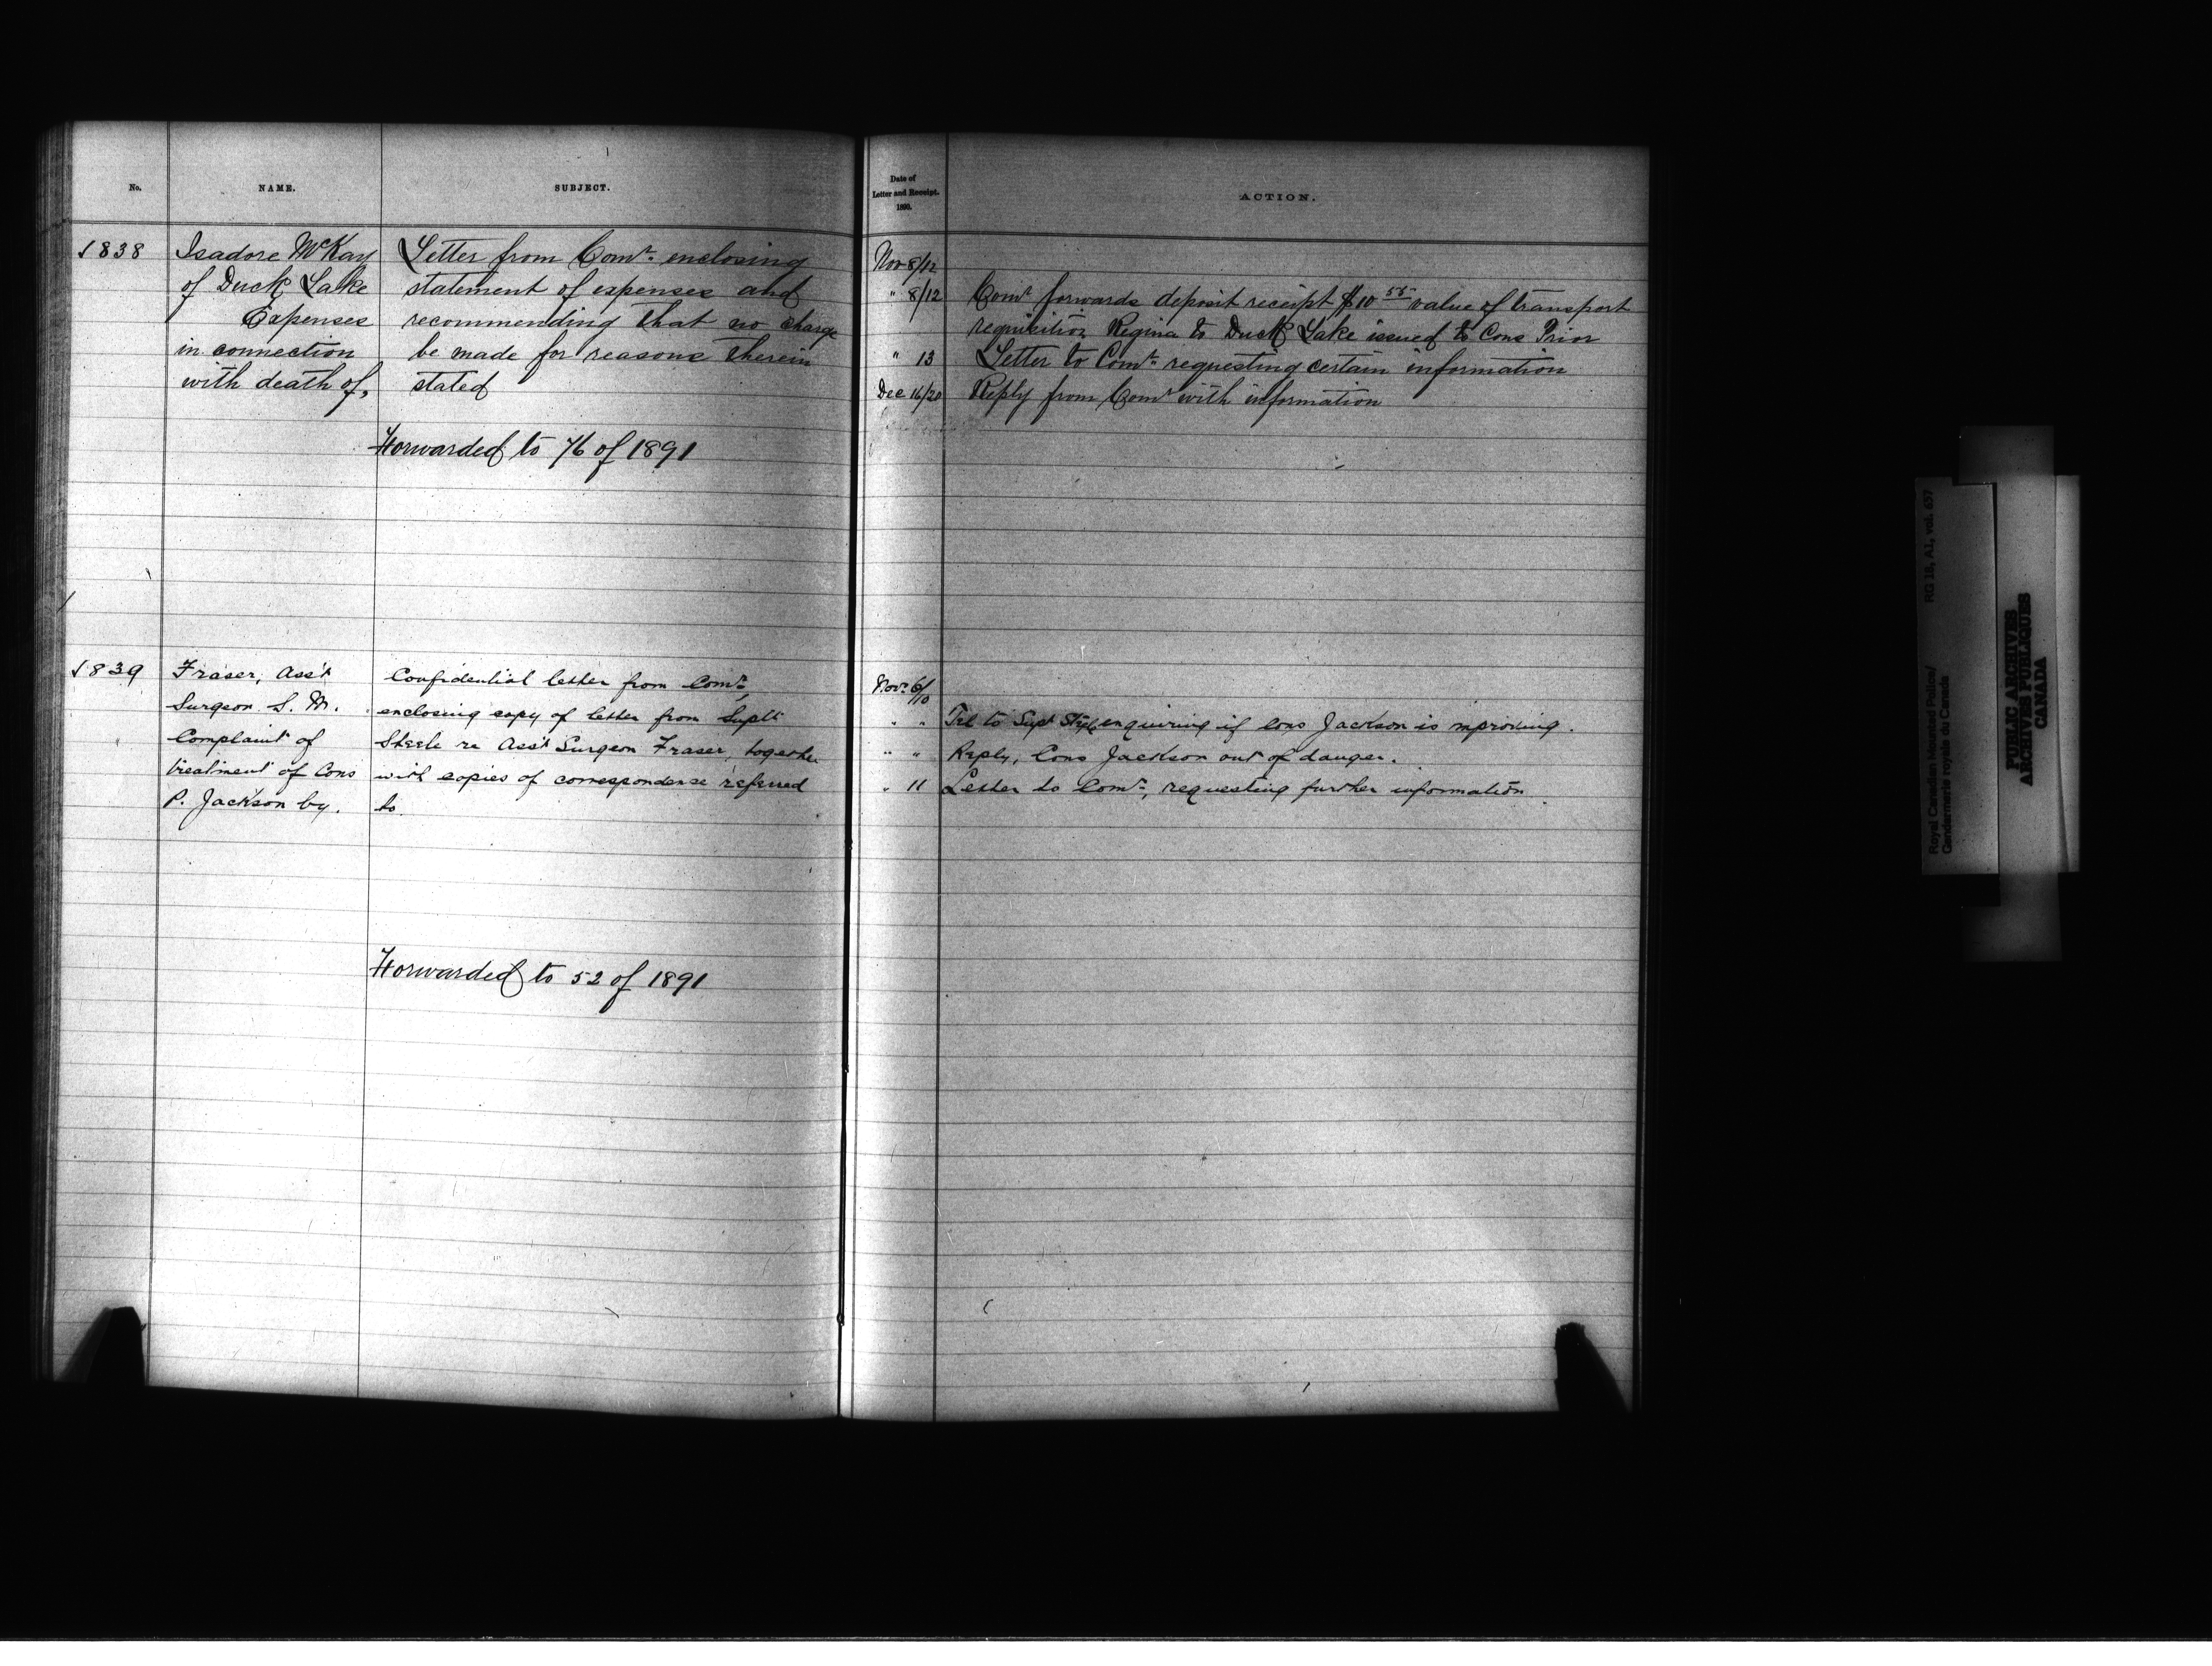 No.
NAME.
SUBJECT.
Date of
Letter and Receipt.
1890.
ACTION.
1838
Isadore McKay
of Duck Lake
Expenses
in connection
with death of,
Letter from Comr. enclosing
statement of expenses and
recommending that no charge
be made for reasons therein
stated
Forwarded to 76 of 1891
Nov 8/12
" 8/12 Comr forwards deposit receipt $10 55 value of transport
requisition Regina to Duck Lake issued to Cons Prior
" 13 Letter to Comr. requesting certain information
Dec 16/20 Reply from Comr with information
1839
Fraser, Ass't
Surgeon S. M.
Complaint of
treatment of Cons
P. Jackson by.
Confidential letter from Comr.,
enclosing copy of letter from Supt
Steele re Ass't Surgeon Fraser, together
with copies of correspondence referred
to.
Forwarded to 52 of 1891
Novr. 6/10
" " Tel to Supt Steele enquiring if Cons Jackson is mproving.
" " Reply, Cons Jackson out of danger.
" 11 Letter to Comr., requesting further information
Royal Canadian Mounted Police/
Gendarmerie royale du Canada
RG 18, A1, vol. 657
PUBLIC ARCHIVES
ARCHIVES PUBLIQUES
CANADA